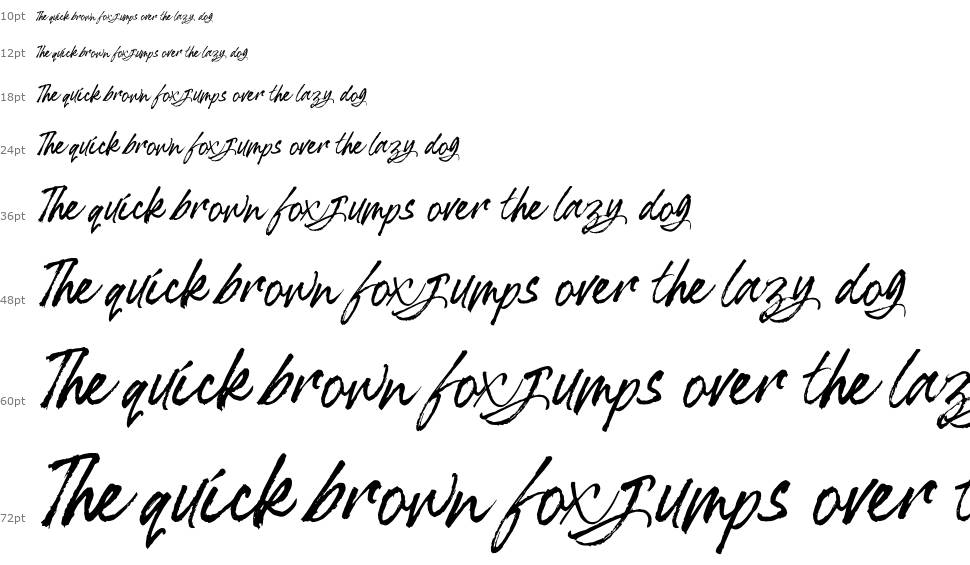 10pt The quick brown fox jumps over the lazy dog
12pt The quick brown fox jumps over the lazy dog
18pt The quick brown fox jumps over the lazy dog
24pt The quick brown fox jumps over the lazy dog
36pt The quick brown fox jumps over the lazy dog
48pt The quick brown fox jumps over the lazy dog
60pt The quick brown fox jumps over the laz
72pt The quick brown fox jumps over t